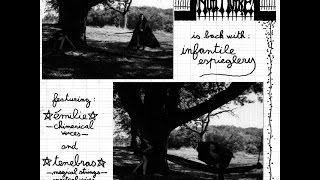 NUIT NOIRE
is back with:
infantile
espieglery
featuring:
émilie
chimerical
voices-
and
tenebras
-magical strings-